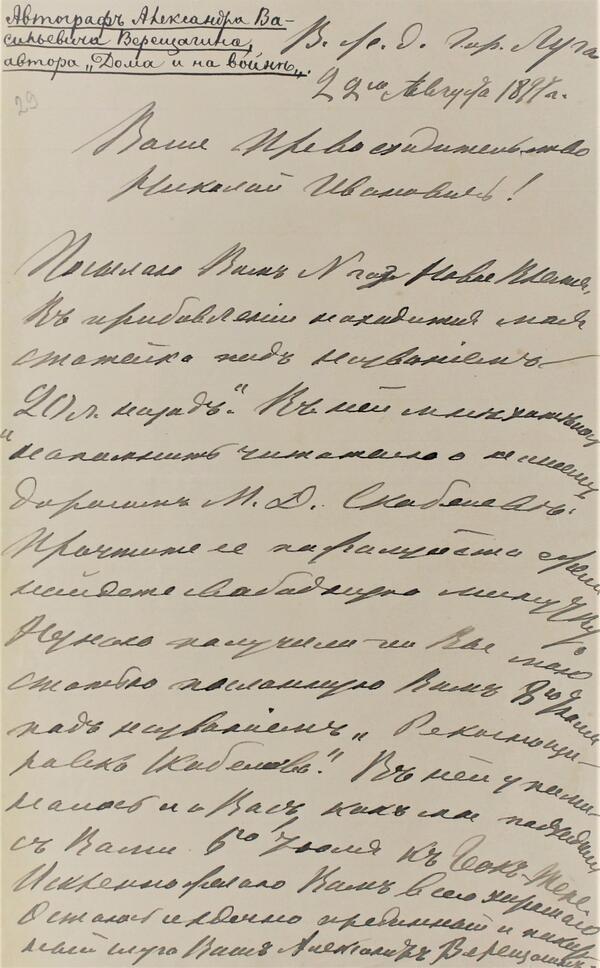 Автографъ Александра Ва-
сильевича Верещагина,
автора „Дома и на войнѣ„.
29
В. р. д. гор. Луга
22го Августа 189 г.
Ваше Превосходительство
Николай Ивановичъ!
Посылаю Вамъ N газ. Новое Время,
Въ прибавленіи находится моя
статейка подъ названіемъ
„20 л. назадъ". Въ ней мнѣ хотѣлось
напомнить читателю о нашемъ
дорогомъ М. Д. Скобелевѣ.
Прочтите ее пожалуйста ежели
найдете свободную минуту
Нужно получили-ли Вы мою
статью посланную Вамъ
подъ названіемъ „Рекогносци-
ровка Скобелева". Въ ней упоми-
налось и о Васъ, какъ мы подходили
съ Вами 6го Іюля къ Геокъ-Тепе.
Искренно желаю Вамъ всего хорошаго
Остаюсь преданный и покор-
ный слуга Вашъ Александръ Верещагинъ.